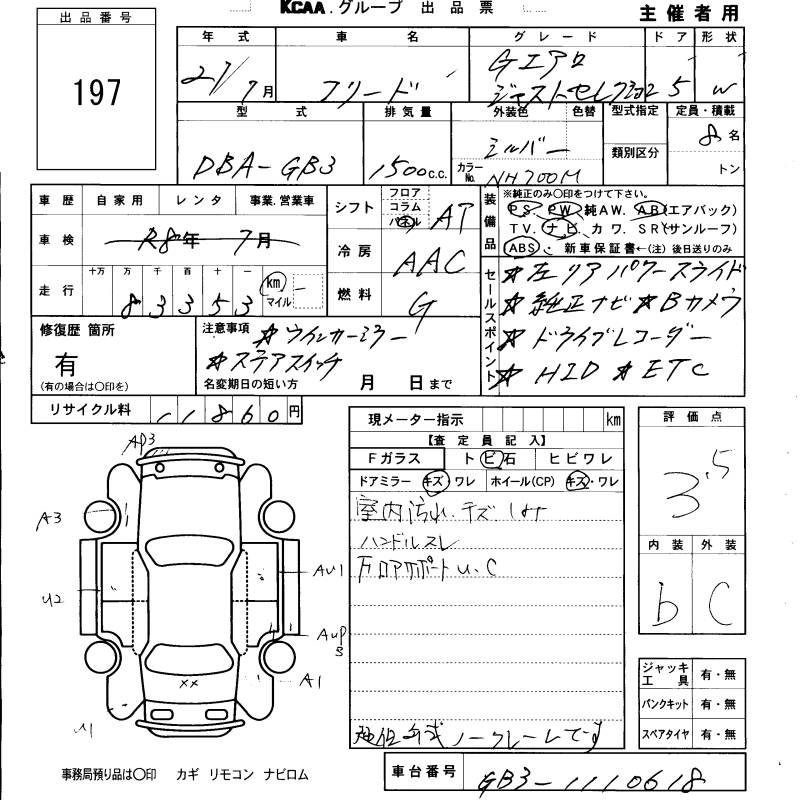 出品番号
197
KCAA.グループ 出品票
主催者用
年式 車名 グレード ドア 形状
27/7月 フリード Gエアロ
ジャストセレクション 5 W
型式 排気量 外装色 色替 型式指定 定員・積載
DBA-GB3 1500c.c. シルバー 8名
カラーNo. NH700M 類別区分 トン
車歴 自家用 レンタ 事業.営業車
車検 R8年 7月
走行 十万 万 千 百 十 一 km マイル
83353
シフト フロア コラム パネル AT
冷房 AAC
燃料 G
装備品 ※純正のみ〇印をつけて下さい。
PS. PW. 純AW. AB(エアバック)
TV. ナビ. カワ. SR(サンルーフ)
ABS. 新車保証書←(注)後日送りのみ
セールスポイント
☆左リアパワースライド
☆純正ナビ ☆Bカメラ
☆ドライブレコーダー
☆HID ☆ETC
修復歴 箇所
有
(有の場合は〇印を)
注意事項 ☆ウインカーミラー
☆ステアスイッチ
名変期日の短い方 月 日まで
リサイクル料 11860円
現メーター指示 km
【査定員記入】
Fガラス ト ビ 石 ヒビワレ
ドアミラー キズ ワレ ホイール(CP) キズ・ワレ
室内汚れ.キズ
ハンドルスレ
フロアサポートU.C
ノークレームです
評価点
3.5
内装 外装
b C
ジャッキ工具 有・無
パンクキット 有・無
スペアタイヤ 有・無
AP3
A3
AU1
U2
AUP3
A1
U1
××
事務局預り品は〇印 カギ リモコン ナビロム
車台番号 GB3-1110618